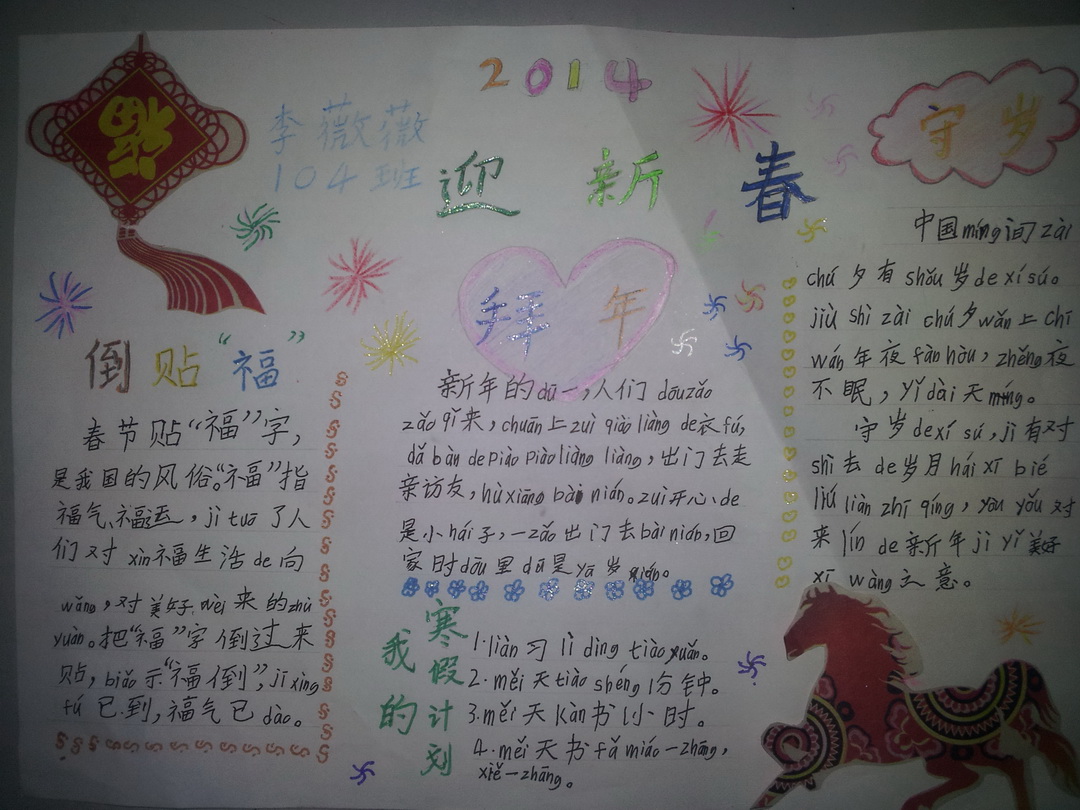 福
2014
李薇薇
104班
迎新春
倒贴“福”
春节贴“福”字，
是我国的风俗。“福”指
福气、福运，jì tuō 了人
们对 xìn福生活 de 向
wǎng，对美好 wèi 来的zhù
yuàn。把“福”字倒过来
贴，biǎo示“福倒”，jí xìng
fú 已到，福气已 dào。
拜年
新年的dū一，人们 dōuzǎo
zǎo qǐ来，chuān上zuì qiào liàng de衣fú，
dǎ bàn de piào piào liàng liàng，出门去走
亲访友，hù xiāng bài nián。zuì开心 de
是小hái子，一zǎo出门去bài nián，回
家时dōu里dū是yā岁qián。
我的寒假计划
1.liàn习 lì dìng tiào yuǎn。
2.měi天tiào shéng 1分钟。
3.měi天kàn书1小时。
4.měi天书fǎ miáo一zhāng，
xiě一zhāng。
守岁
中国míng间zài
chú夕有shǒu岁de xí sú。
jiù shì zài chú夕wǎn上chī
wán年夜fàn hòu，zhěng夜
不眠，yǐ dài天míng。
守岁de xí sú，jì有对
shì去de岁月hái xī bié
liú liàn zhī qíng，yòu yǒu对
来lín de新年jì yǐ美好
xī wàng之意。